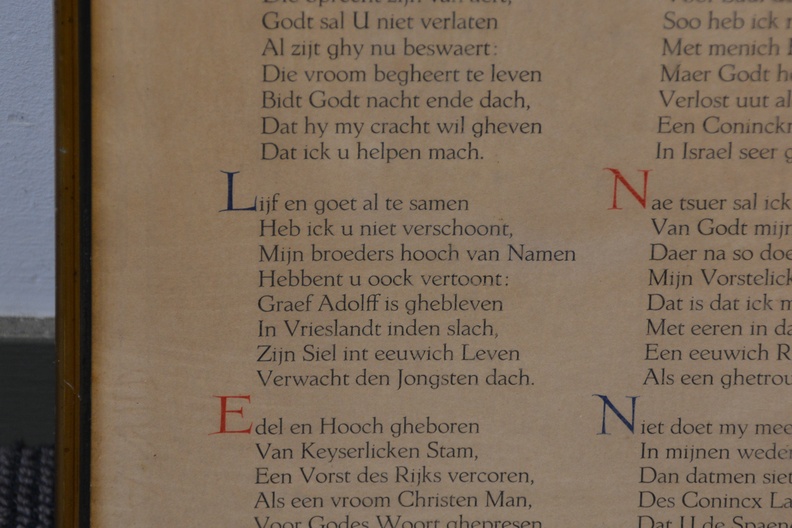 Godt sal U niet verlaten
Al zijt ghy nu beswaert:
Die vroom begheert te leven
Bidt Godt nacht ende dach,
Dat hy my cracht wil gheven
Dat ick u helpen mach.
Lijf en goet al te samen
Heb ick u niet verschoont,
Mijn broeders hooch van Namen
Hebbent u oock vertoont:
Graef Adolff is ghebleven
In Vrieslandt inden slach,
Zijn Siel int eeuwich Leven
Verwacht den Jongsten dach.
Edel en Hooch gheboren
Van Keyserlicken Stam,
Een Vorst des Rijks vercoren,
Als een vroom Christen Man,
Voor Godes Woort ghepresen
Soo heb ick
Met menich
Maer Godt
Verlost uut
Een
In Israel seer
Nae tsuer sal ick
Van Godt mijn
Daer na so
Mijn
Dat is dat ick
Met eeren in
Een eeuwich
Als een
Niet doet my
In mijnen
Dan datmen
Des Conincx
Dat U de